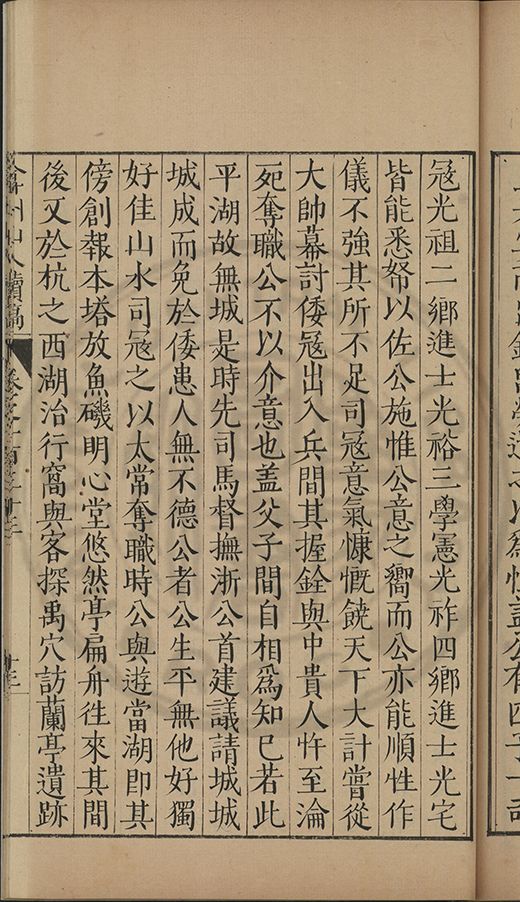 冦光祖二鄉進士光裕三學憲光祚四鄉進士光宅
皆能悉帑以佐公施惟公意之嚮而公亦能順性作
儀不強其所不足司冦意氣慷慨饒天下大計嘗從
大帥幕討倭冦出入兵間其握銓與中貴人忤至淪
死奪職公不以介意也盖父子間自相爲知已若此
平湖故無城是時先司馬督撫浙公首建議請城城
城成而免於倭患人無不德公者公生平無他好獨
好佳山水司冦之以太常奪職時公與遊當湖即其
傍創報本塔放魚磯明心堂悠然亭扁舟徃來其間
後又於杭之西湖治行窩與客探禹穴訪蘭亭遺跡
弇州山人續稿
卷之一百二十三
十三